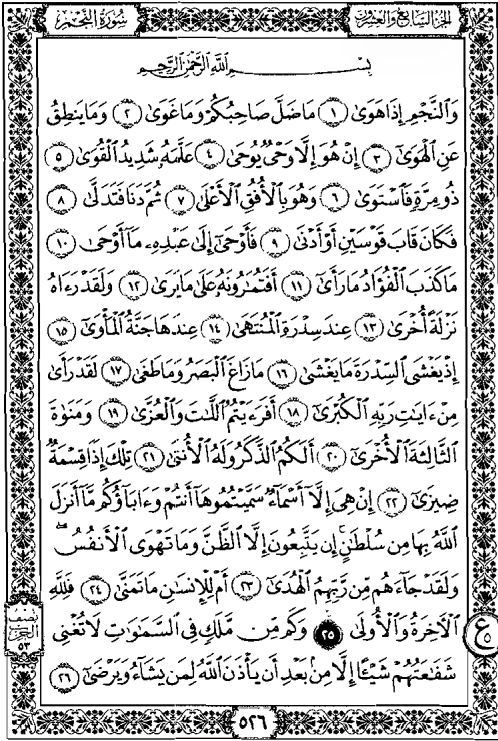 سُورَةُ النَّجْمِ الجزء السابع والعشرون
بِسْمِ اللَّهِ الرَّحْمَٰنِ الرَّحِيمِ
وَالنَّجْمِ إِذَا هَوَىٰ ١ مَا ضَلَّ صَاحِبُكُمْ وَمَا غَوَىٰ ٢ وَمَا يَنطِقُ
عَنِ الْهَوَىٰ ٣ إِنْ هُوَ إِلَّا وَحْيٌ يُوحَىٰ ٤ عَلَّمَهُ شَدِيدُ الْقُوَىٰ ٥
ذُو مِرَّةٍ فَاسْتَوَىٰ ٦ وَهُوَ بِالْأُفُقِ الْأَعْلَىٰ ٧ ثُمَّ دَنَا فَتَدَلَّىٰ ٨
فَكَانَ قَابَ قَوْسَيْنِ أَوْ أَدْنَىٰ ٩ فَأَوْحَىٰ إِلَىٰ عَبْدِهِ مَا أَوْحَىٰ ١٠
مَا كَذَبَ الْفُؤَادُ مَا رَأَىٰ ١١ أَفَتُمَارُونَهُ عَلَىٰ مَا يَرَىٰ ١٢ وَلَقَدْ رَءَاهُ
نَزْلَةً أُخْرَىٰ ١٣ عِندَ سِدْرَةِ الْمُنتَهَىٰ ١٤ عِندَهَا جَنَّةُ الْمَأْوَىٰ ١٥
إِذْ يَغْشَى السِّدْرَةَ مَا يَغْشَىٰ ١٦ مَا زَاغَ الْبَصَرُ وَمَا طَغَىٰ ١٧ لَقَدْ رَأَىٰ
مِنْ ءَايَاتِ رَبِّهِ الْكُبْرَىٰ ١٨ أَفَرَءَيْتُمُ اللَّاتَ وَالْعُزَّىٰ ١٩ وَمَنَوٰةَ
الثَّالِثَةَ الْأُخْرَىٰ ٢٠ أَلَكُمُ الذَّكَرُ وَلَهُ الْأُنثَىٰ ٢١ تِلْكَ إِذًا قِسْمَةٌ
ضِيزَىٰ ٢٢ إِنْ هِيَ إِلَّا أَسْمَاءٌ سَمَّيْتُمُوهَا أَنتُمْ وَءَابَاؤُكُم مَّا أَنزَلَ
اللَّهُ بِهَا مِن سُلْطَٰنٍ إِن يَتَّبِعُونَ إِلَّا الظَّنَّ وَمَا تَهْوَى الْأَنفُسُ
وَلَقَدْ جَاءَهُم مِّن رَّبِّهِمُ الْهُدَىٰ ٢٣ أَمْ لِلْإِنسَٰنِ مَا تَمَنَّىٰ ٢٤ فَلِلَّهِ
الْآخِرَةُ وَالْأُولَىٰ ٢٥ وَكَم مِّن مَّلَكٍ فِي السَّمَٰوَٰتِ لَا تُغْنِي
شَفَٰعَتُهُمْ شَيْئًا إِلَّا مِن بَعْدِ أَن يَأْذَنَ اللَّهُ لِمَن يَشَاءُ وَيَرْضَىٰ ٢٦
نصف
الحزب
٥٣
ع ٥
٥٢٦